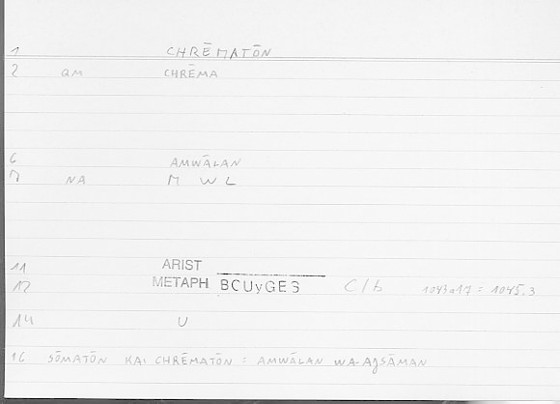 1 CHRĒMATŌN
2 QM CHRĒMA
6 AMWĀLAN
7 NA M W L
11 ARIST
12 METAPH BCUyGES C/b 1043a17 = 1045.3
14 U
16 SŌMATŌN KAI CHRĒMATŌN = AMWĀLAN WA-AǧSĀMAN